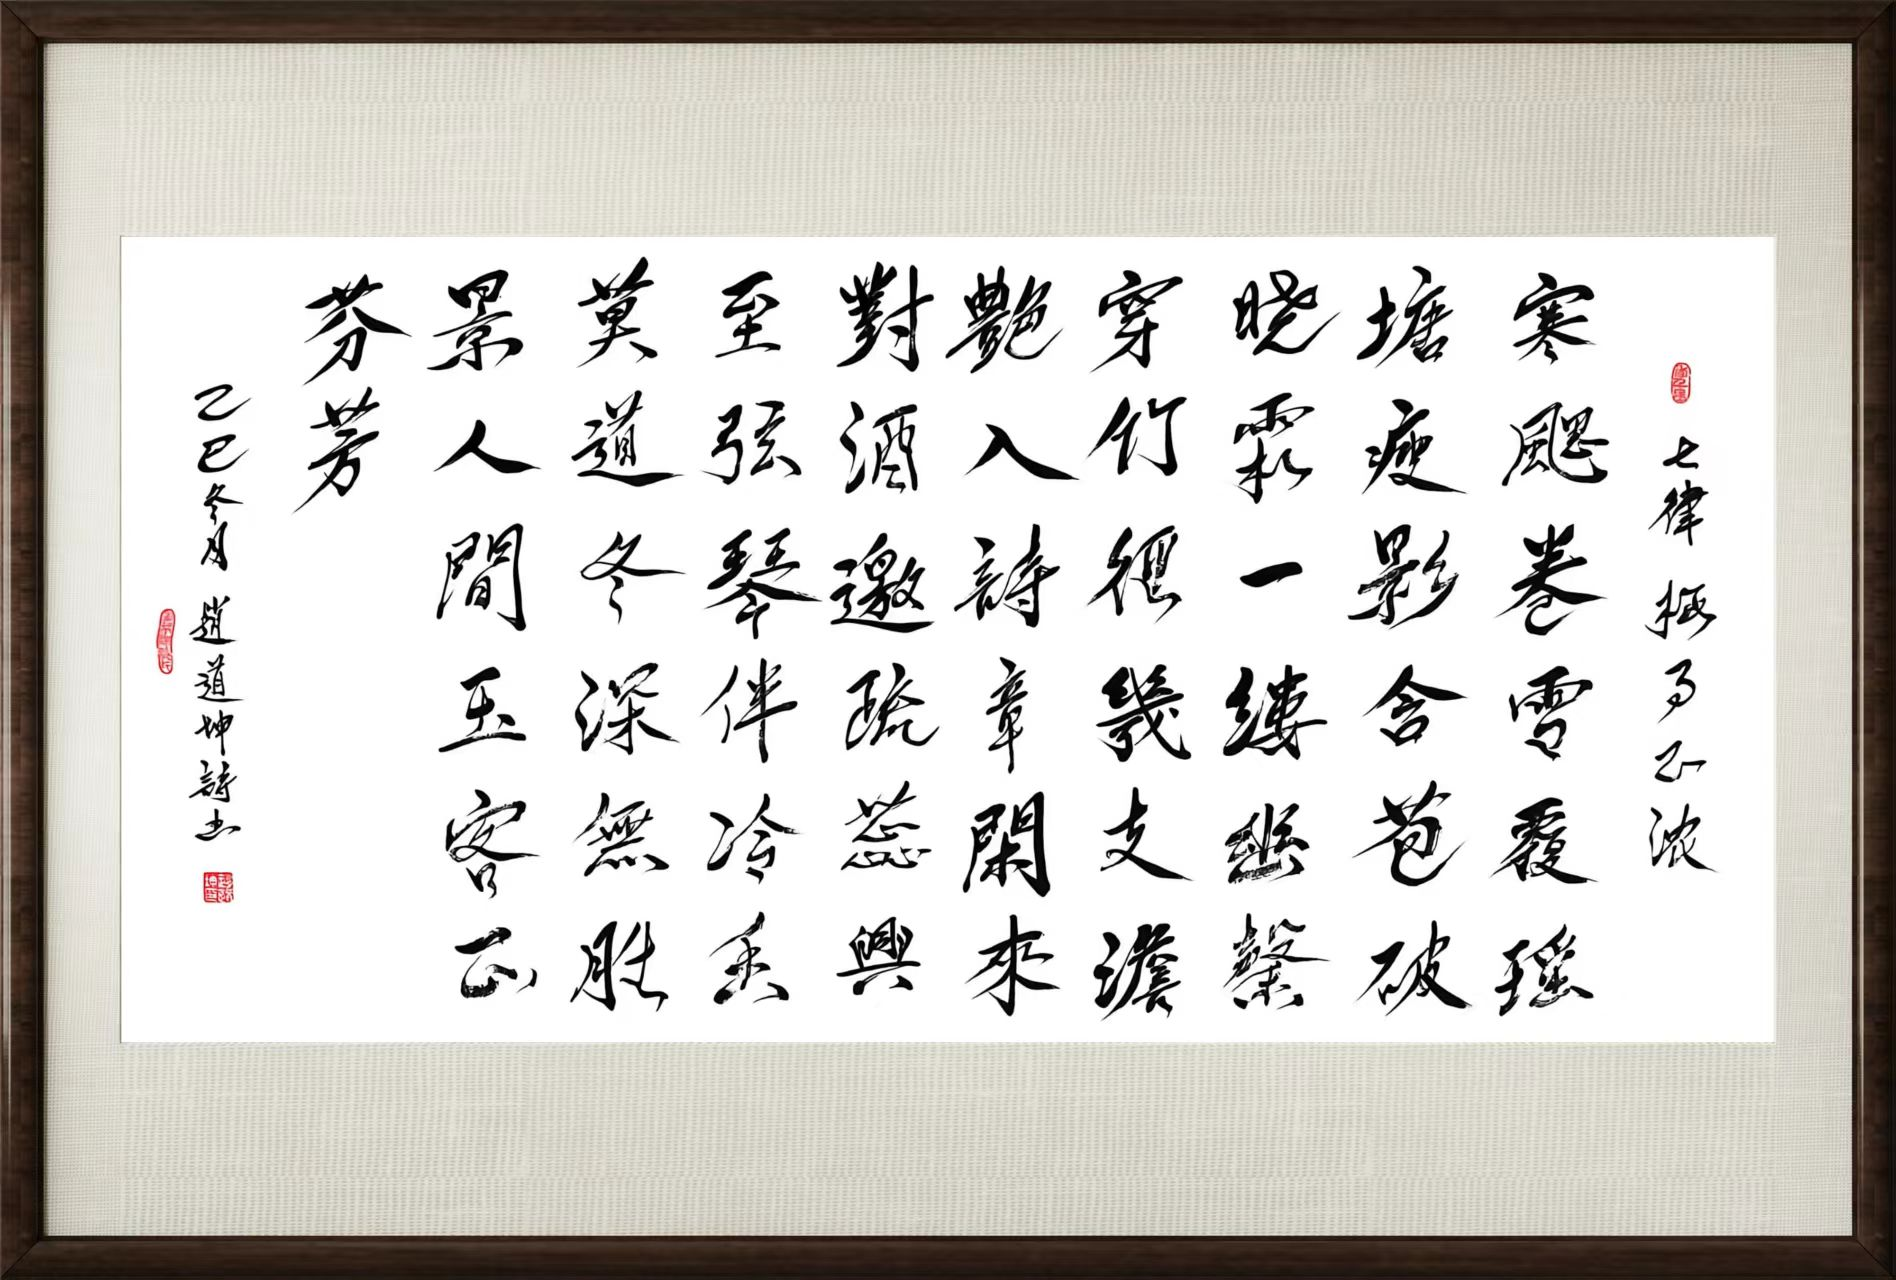 七律 梅 正浓
寒颸卷雪覆瑶
塘瘦影含苞破
晓霜一缕幽馨
穿竹徑幾支澹
艷入詩章閑來
對酒邀疏蕊興
至弦琴伴冷香
莫道冬深無胜
景人間玉客正
芬芳
乙巳冬月 趙道坤詩书